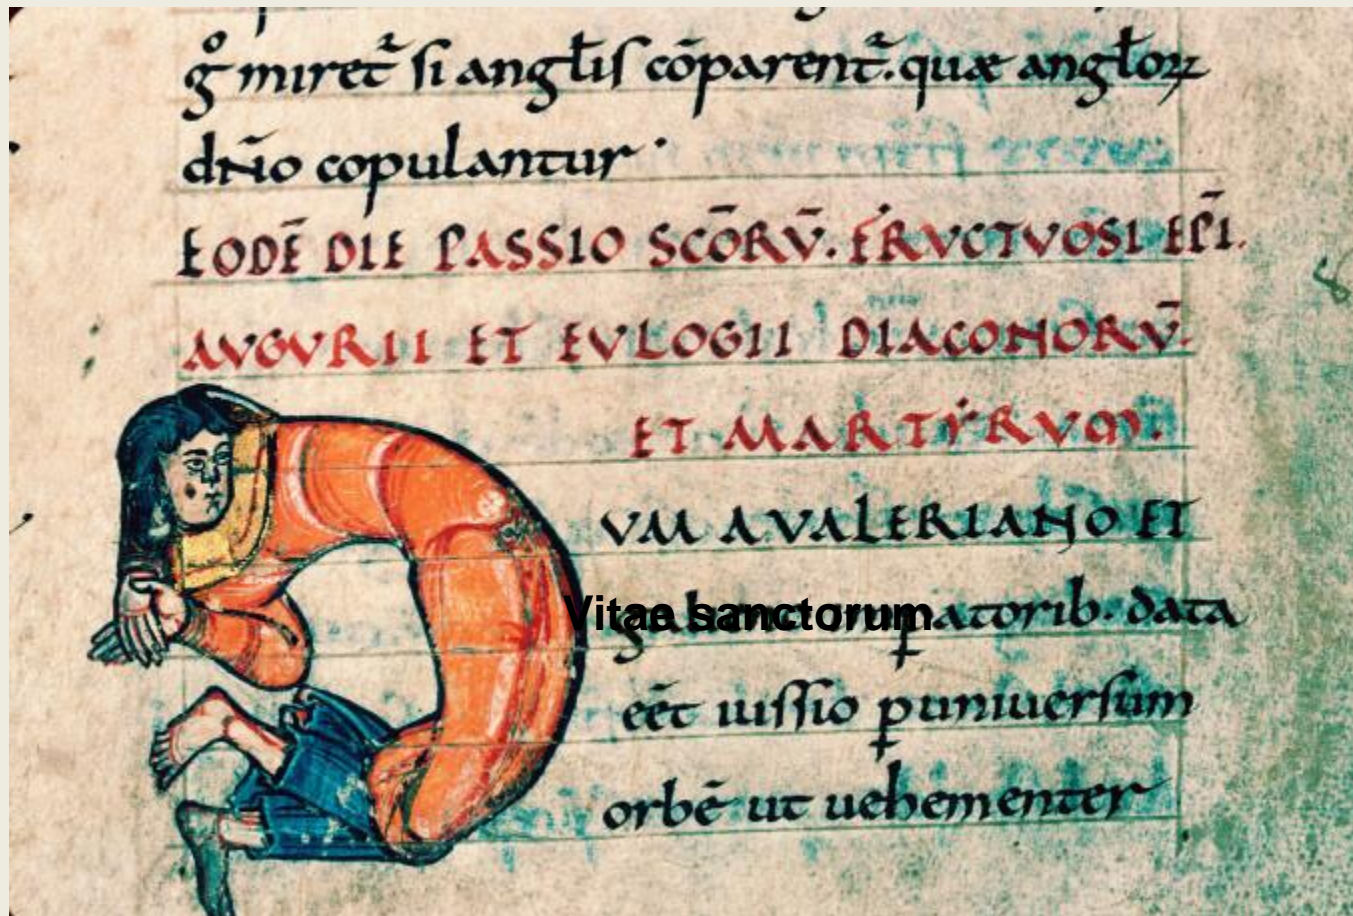 g° miret᷑ si angłis cōparent᷑. quæ angłoꝝ
dn̄o copulantur
EODĒ DIE PASSIO SCŌRŪ. FRVCTVOSI EP̄I.
AVGVRII ET EVLOGII DIACONORŪ.
ET MARTYRVM.
VM A VALERIANO ET
Vitae sanctorum
ꝑatorib. data
eēt iussio ꝑ uniuersum
orbē ut uehementer